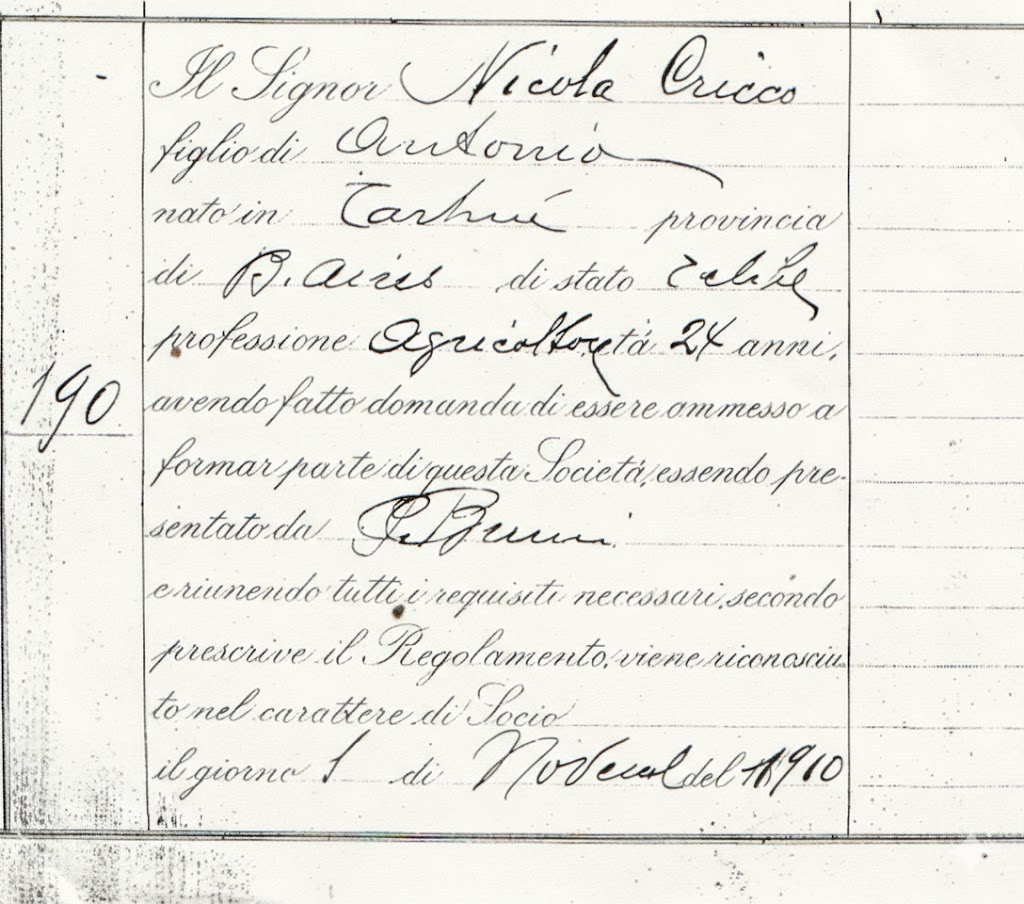 Il Signor Nicola Cricco
figlio di Antonio
nato in Carhué provincia
di B. Aires di stato Celibe
professione Agricoltore età 24 anni,
avendo fatto domanda di essere ammesso a
190
formar parte di questa Società, essendo pre-
sentato da P. Bruni
e riunendo tutti i requisiti necessari, secondo
prescrive il Regolamento, viene riconosciu-
to nel carattere di Socio
il giorno 1 di del 1910